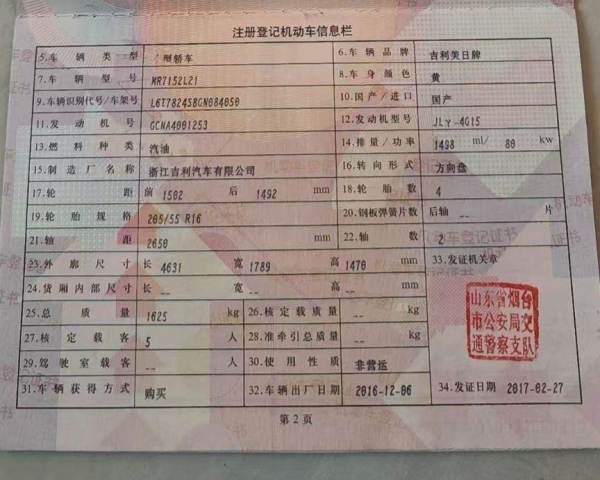 注册登记机动车信息栏
5.车辆类型 型轿车 6.车辆品牌 吉利美日牌
7.车辆型号 MR7152L21 8.车身颜色 黄
9.车辆识别代号/车架号 L6T7824S8GN084050 10.国产/进口 国产
11.发动机号 GCNA4001253 12.发动机型号 JLγ-4G15
13.燃料种类 汽油 14.排量/功率 1498 ml/ 80 kw
15.制造厂名称 浙江吉利汽车有限公司 16.转向形式 方向盘
17.轮距 前 1502 后 1492 mm 18.轮胎数 4
19.轮胎规格 205/55 R16 20.钢板弹簧片数 后轴 -- 片
21.轴距 2650 mm 22.轴数 2
23.外廓尺寸 长 4631 宽 1789 高 1470 mm 33.发证机关章
24.货厢内部尺寸 长 -- 宽 -- 高 -- mm
25.总质量 1625 kg 26.核定载质量 -- kg
27.核定载客 5 人 28.准牵引总质量 -- kg
29.驾驶室载客 -- 人 30.使用性质 非营运
31.车辆获得方式 购买 32.车辆出厂日期 2016-12-06 34.发证日期 2017-02-27
山东省烟台
市公安局交
通警察支队
第2页